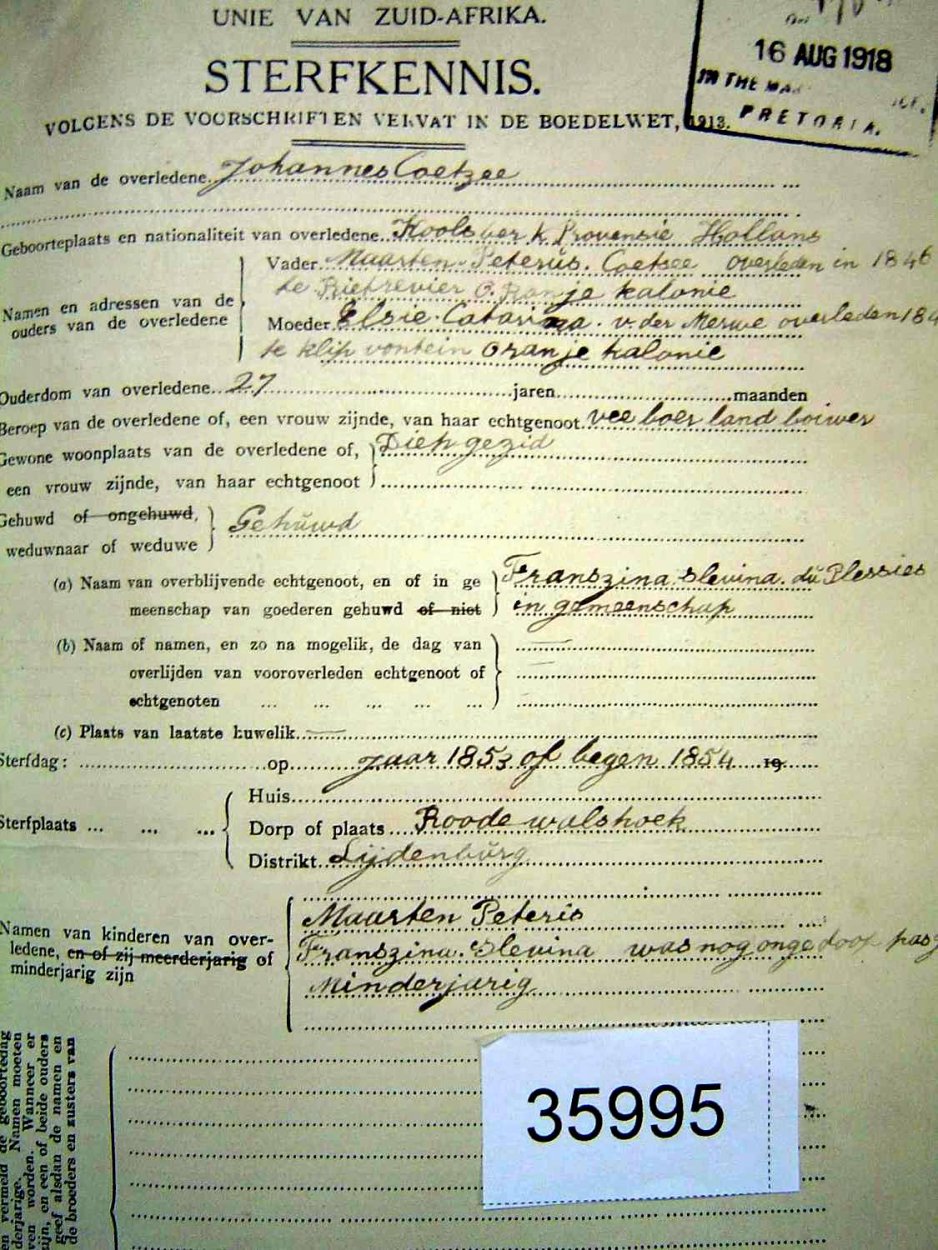 UNIE VAN ZUID-AFRIKA.
STERFKENNIS.
VOLGENS DE VOORSCHRIFTEN VERVAT IN DE BOEDELWET, 1913.
16 AUG 1918
IN THE
PRETORIA.
Naam van de overledene Johannes Coetzee
Geboorteplaats en nationaliteit van overledene Provensie Hollans
Namen en adressen van de ouders van de overledene
Vader Maarten Peterus. Coetsee overleden in 1846
te Rietrevier O. Ranje kalonie
Moeder Elsie Catarina v. der Merwe overleden 184
te klip vontein Oranje kalonie
Ouderdom van overledene 27 jaren maanden
Beroep van de overledene of, een vrouw zijnde, van haar echtgenoot vee boer land bouwer
Gewone woonplaats van de overledene of, een vrouw zijnde, van haar echtgenoot Diep gezid
Gehuwd of ongehuwd, weduwnaar of weduwe Gehuwd
(a) Naam van overblijvende echtgenoot, en of in ge
meenschap van goederen gehuwd of niet
Franszina Slevina. du Plessies
in gemeenschap
(b) Naam of namen, en zo na mogelik, de dag van
overlijden van vooroverleden echtgenoot of
echtgenoten ... ... ... ... ...
(c) Plaats van laatste huwelik
Sterfdag: op jaar 1853 of begen 1854 19
Sterfplaats ... ... ...
Huis
Dorp of plaats Roode walshoek
Distrikt Lijdenburg
Namen van kinderen van over-
ledene, en of zij meerderjarig of
minderjarig zijn
Maarten Peteris
Franszina. Slevina was nog onge doop pas
Minderjarig
35995
vermeld de geboortedag
derjarige. Namen moeten
ven worden. Wanneer er
zijn, en een of beide ouders
geef alsdan de namen en
de broeders en zusters van